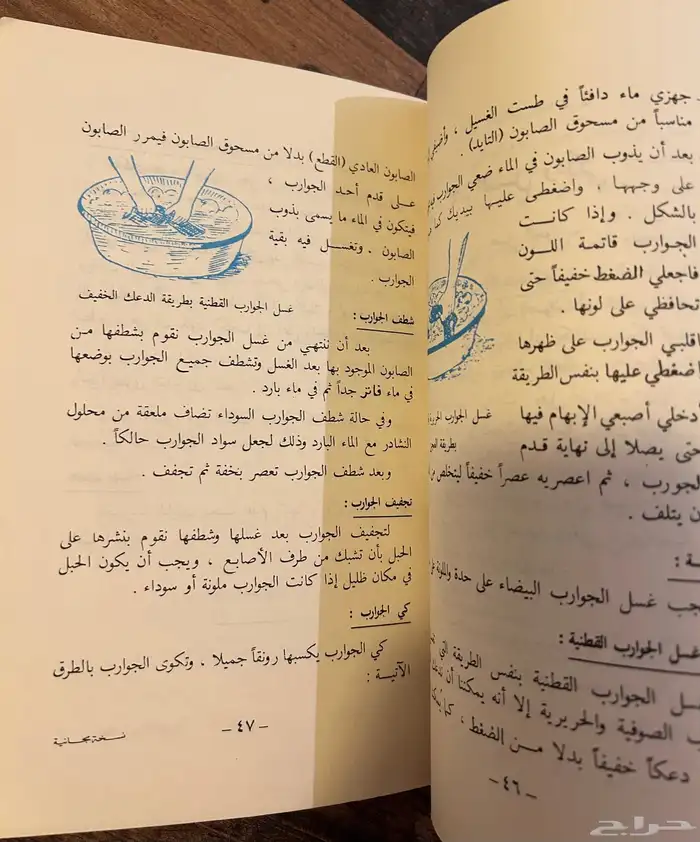 جهزي ماء دافئاً في طست الغسيل ،
مناسباً من مسحوق الصابون (التايد) .
بعد أن يذوب الصابون في الماء ضعي الجوارب
على وجهها . واضغطى عليها بيديك
بالشكل . وإذا كانت
الجوارب قاتمة اللون
فاجعلي الضغط خفيفاً حتى
تحافظي على لونها .
اقلبي الجوارب على ظهرها
اضغطي عليها بنفس الطريقة
أدخلي أصبعي الإبهام فيها
حتى يصلا إلى نهاية قدم
الجورب ، ثم اعصريه عصراً خفيفاً
يتلف .
غسل الجوارب
بطريقة
غسل الجوارب البيضاء على حدة
غسل الجوارب القطنية :
الجوارب القطنية بنفس الطريقة
الصوفية والحريرية إلا أنه يمكننا أن
دعكاً خفيفاً بدلا من الضغط ،
- ٤٦ -
الصابون العادي (القطع) بدلا من مسحوق الصابون فيمرر الصابون
على قدم أحد الجوارب ،
فيتكون في الماء ما يسمى بذوب
الصابون . وتغسل فيه بقية
الجوارب .
غسل الجوارب القطنية بطريقة الدعك الخفيف
شطف الجوارب :
بعد أن ننتهي من غسل الجوارب نقوم بشطفها من
الصابون الموجود بها بعد الغسل وتشطف جميع الجوارب بوضعها
في ماء فاتر جداً ثم في ماء بارد .
وفي حالة شطف الجوارب السوداء تضاف ملعقة من محلول
النشادر مع الماء البارد وذلك لجعل سواد الجوارب حالكاً .
وبعد شطف الجوارب تعصر بخفة ثم تجفف .
تجفيف الجوارب :
لتجفيف الجوارب بعد غسلها وشطفها نقوم بنشرها على
الحبل بأن تشبك من طرف الأصابع ، ويجب أن يكون الحبل
في مكان ظليل إذا كانت الجوارب ملونة أو سوداء .
كي الجوارب :
كي الجوارب يكسبها رونقاً جميلا ، وتكوى الجوارب بالطرق
الآتية :
- ٤٧ -
نسخة مجانية
حراج